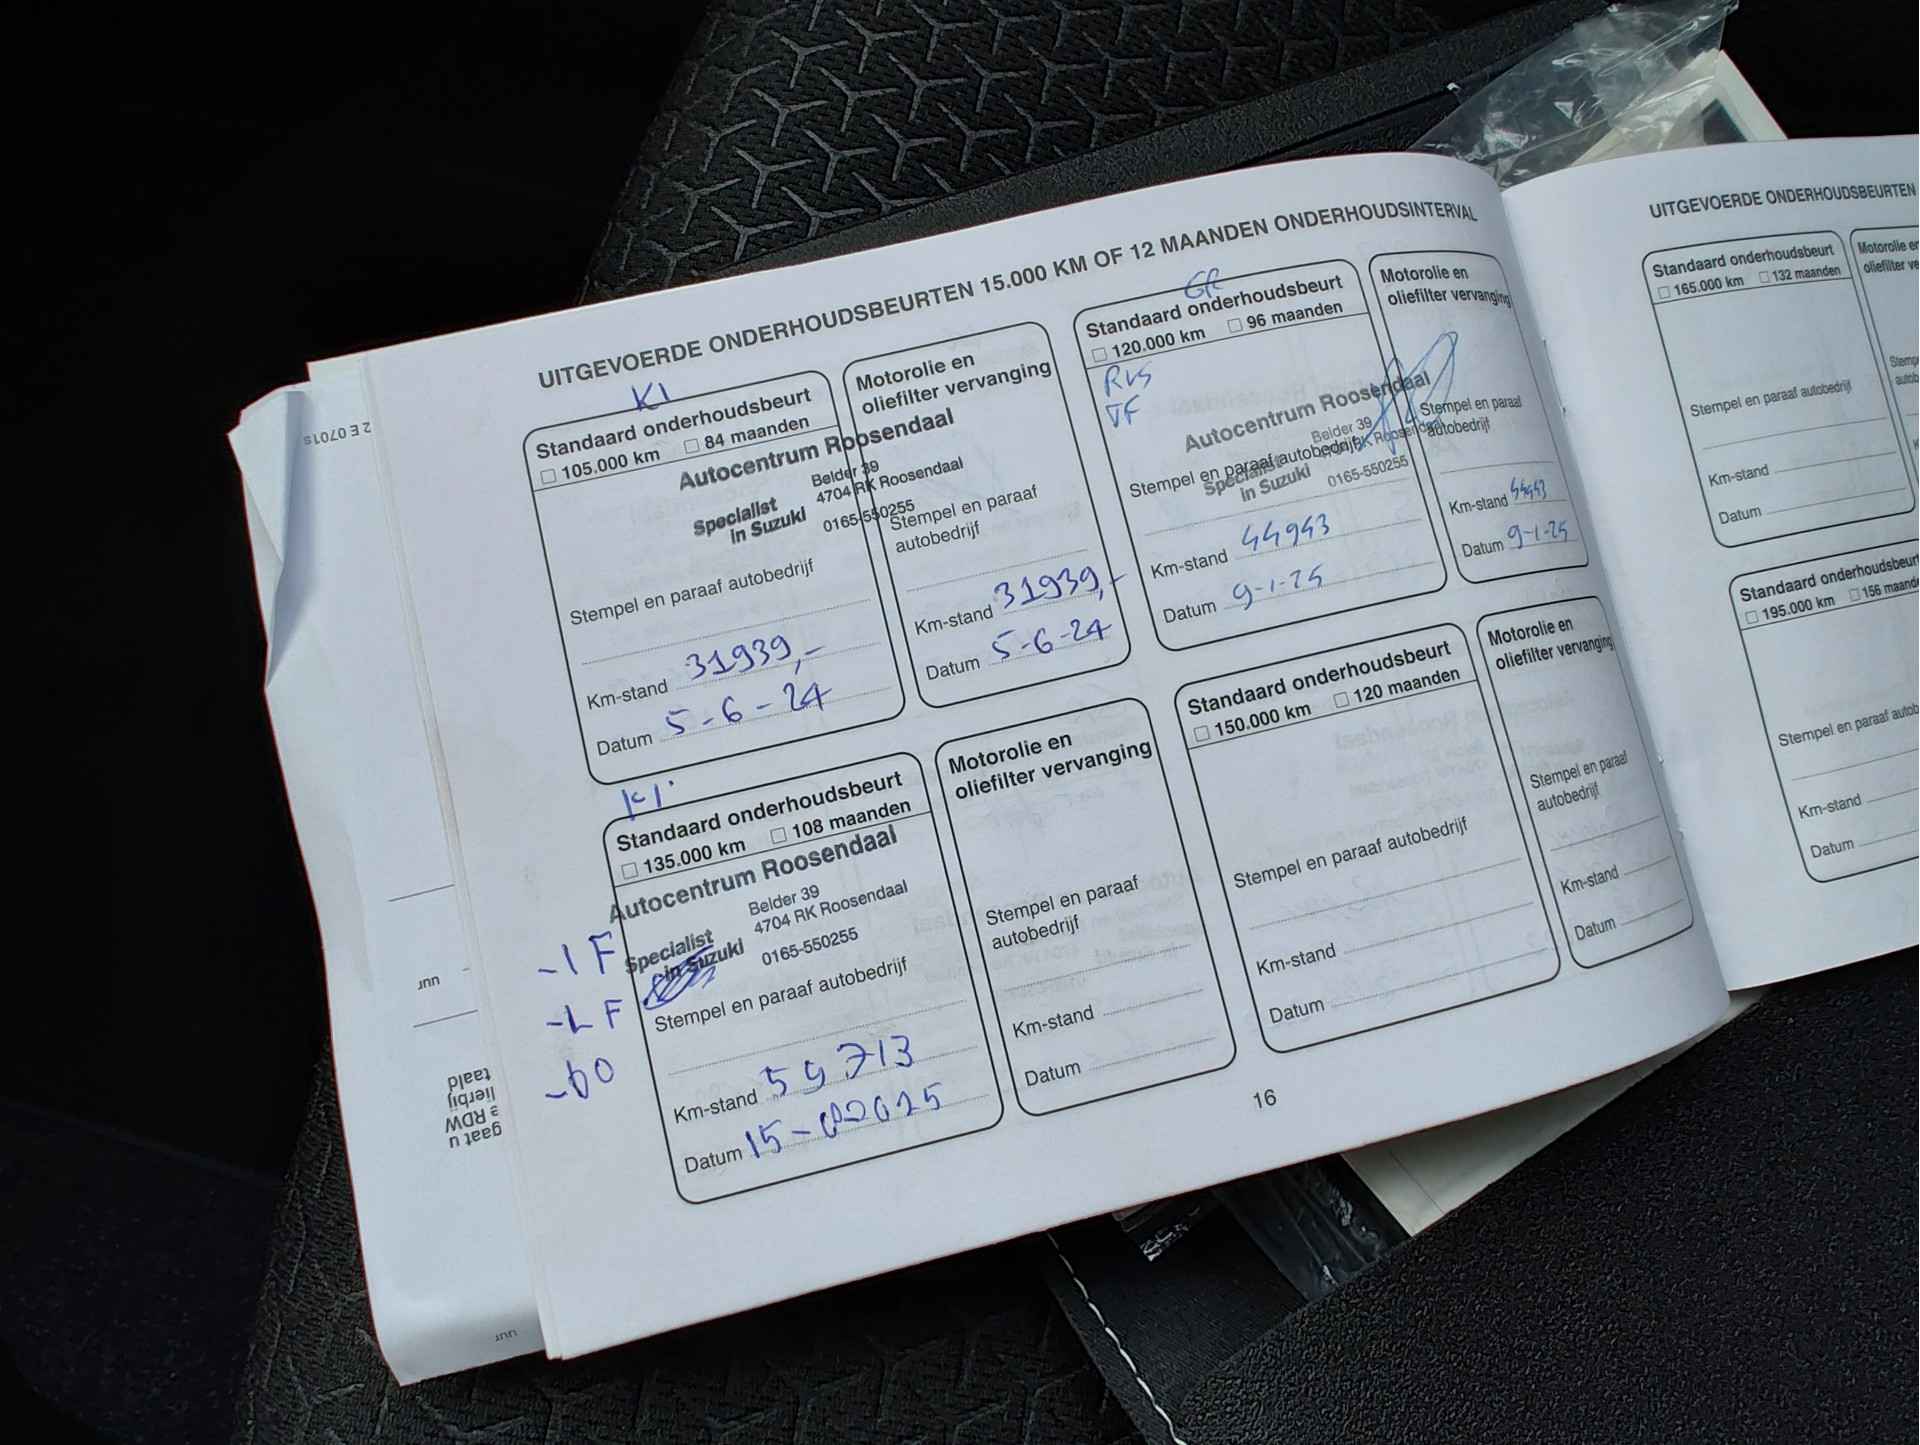 UITGEVOERDE ONDERHOUDSBEURTEN 15.000 KM OF 12 MAANDEN ONDERHOUDSINTERVAL
KL
Standaard onderhoudsbeurt
105.000 km 84 maanden
Autocentrum Roosendaal
Belder 39
4704 RK Roosendaal
Specialist
in Suzuki
0165-550255
Stempel en paraaf autobedrijf
Km-stand 31939,-
Datum 5-6-24
Motorolie en
oliefilter vervanging
Stempel en paraaf
autobedrijf
Km-stand 31939,-
Datum 5-6-24
GR
Standaard onderhoudsbeurt
120.000 km 96 maanden
RVS
Autocentrum Roosendaal
Belder 39
RK Roosendaal
Specialist
in Suzuki
0165-550255
Stempel en paraaf autobedrijf
Km-stand 44943
Datum 9-1-25
Motorolie en
oliefilter vervanging
Stempel en paraaf
autobedrijf
Km-stand 44943
Datum 9-1-25
Standaard onderhoudsbeurt
135.000 km 108 maanden
Autocentrum Roosendaal
Belder 39
4704 RK Roosendaal
Specialist
in Suzuki
0165-550255
-IF
-LF
Stempel en paraaf autobedrijf
Km-stand 59713
Datum
Motorolie en
oliefilter vervanging
Stempel en paraaf
autobedrijf
Km-stand
Datum
Standaard onderhoudsbeurt
150.000 km 120 maanden
Stempel en paraaf autobedrijf
Km-stand
Datum
Motorolie en
oliefilter vervanging
Stempel en paraaf
autobedrijf
Km-stand
Datum
16
UITGEVOERDE ONDERHOUDSBEURTEN
Standaard onderhoudsbeurt
165.000 km 132 maanden
Stempel en paraaf autobedrijf
Km-stand
Datum
Motorolie en
oliefilter
Standaard onderhoudsbeurt
195.000 km 156
Stempel en paraaf
Km-stand
Datum
2 E 0701s
gaat u
RDW
taald